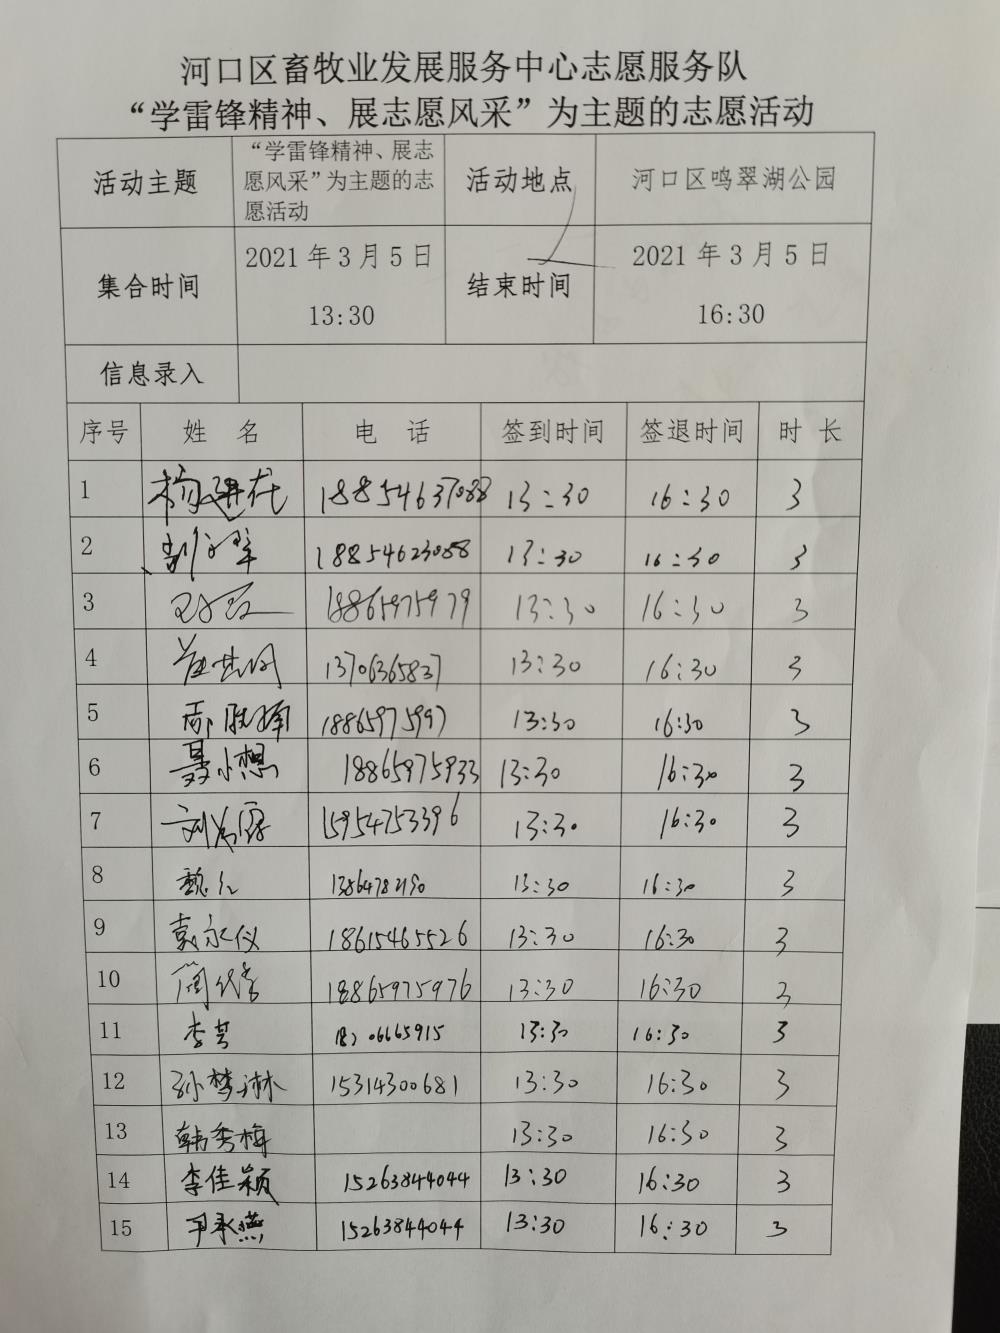 河口区畜牧业发展服务中心志愿服务队
“学雷锋精神、展志愿风采”为主题的志愿活动
活动主题 “学雷锋精神、展志愿风采”为主题的志愿活动 活动地点 河口区鸣翠湖公园
集合时间 2021年3月5日 13:30 结束时间 2021年3月5日 16:30
信息录入
序号 姓 名 电 话 签到时间 签退时间 时 长
1 18854637088 13:30 16:30 3
2 18854623088 13:30 16:30 3
3 18865975979 13:30 16:30 3
4 13706365837 13:30 16:30 3
5 18865975997 13:30 16:30 3
6 聂小想 18865975933 13:30 16:30 3
7 15954753396 13:30 16:30 3
8 13:30 16:30 3
9 袁永仪 18615465526 13:30 16:30 3
10 18865975976 13:30 16:30 3
11 13:30 16:30 3
12 孙梦琳 15314300681 13:30 16:30 3
13 韩秀梅 13:30 16:30 3
14 李佳颖 15263844044 13:30 16:30 3
15 15263844044 13:30 16:30 3